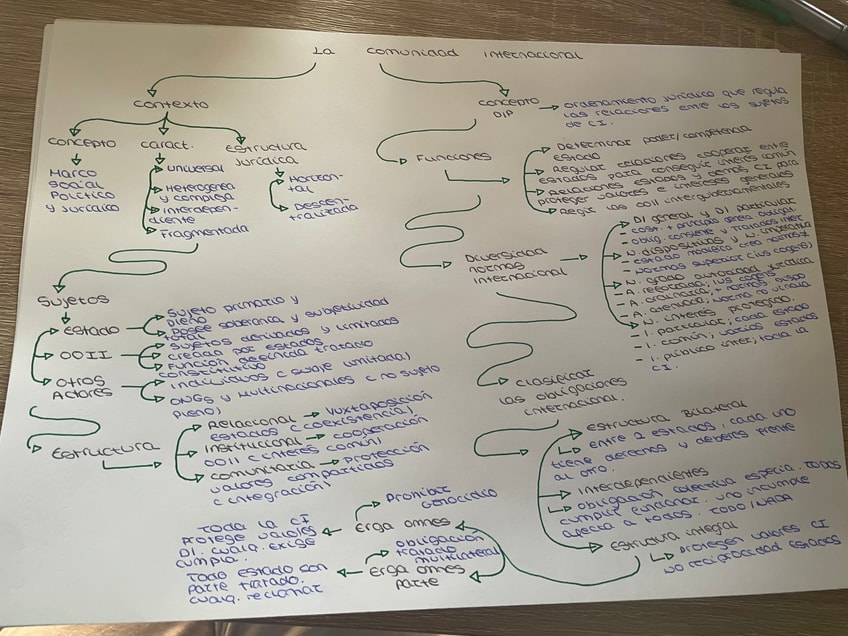 La comunidad internacional
contexto
concepto
Marco
social
Político
y jurídico
caract.
universal
Heterogenea
y compleja
interdepen-
diente
Fragmentada
Estructura
jurídica
Horizon-
tal
Descen-
tralizada
Sujetos
Estado
Sujeto primario y
pleno
Posee soberanía y subjetividad
total
OOII
Sujetos derivados y limitados
creada por estados
Función definida tratado
constitutivo
otros
Actores
individuos (
limitada)
ONGs y Multinacionales (no sujeto
pleno)
Estructura
Relacional → Yuxtaposición
estados (coexistencia).
Institucional → cooperación
OOII (interés común)
comunitaria → protección
valores compartidos
(integración)
concepto
DIP
ordenamiento jurídico que regula
las relaciones entre los sujetos
de CI.
Funciones
Determinar poder/competencia
estado
Regular relaciones cooperar entre
estados para conseguir interés común
Relaciones estados y demás CI para
proteger valores e intereses generales
Regir las OOII intergubernamentales
Diversidad
normas
internacional
DI general y DI particular
- cost. + principio genera
- oblig. consiente y tratados inter
N. dispositivas y N. imperativa
- estado modifica crea normas
- normas superior (ius cogens)
N. grado autoridad jurídica
- A. reforzada, ius cogens
- A. ordinaria, + normas dispo
- A. atenuada, norma no vincula
N. interes protegido.
- I. particular, cada estado
- I. común, varios estados
- I. público inter, toda la
CI.
clasificar
las obligaciones
internacional.
estructura Bilateral
entre 2 estados, cada uno
tiene derechos y deberes frente
al otro.
Interdependientes
obligación colectiva especia. todos
cumplir funcionar. uno incumple
afecta a todos. TODO/NADA
Estructura integral
protegen valores CI
no reciprocidad estados
Erga omnes
Prohibir
Genocidio
Toda la CI
protege valores
DI. cualq. exige
cumpla.
Erga omnes
parte
obligación
tratado
multilateral
Todo estado con
parte tratado.
cualq.